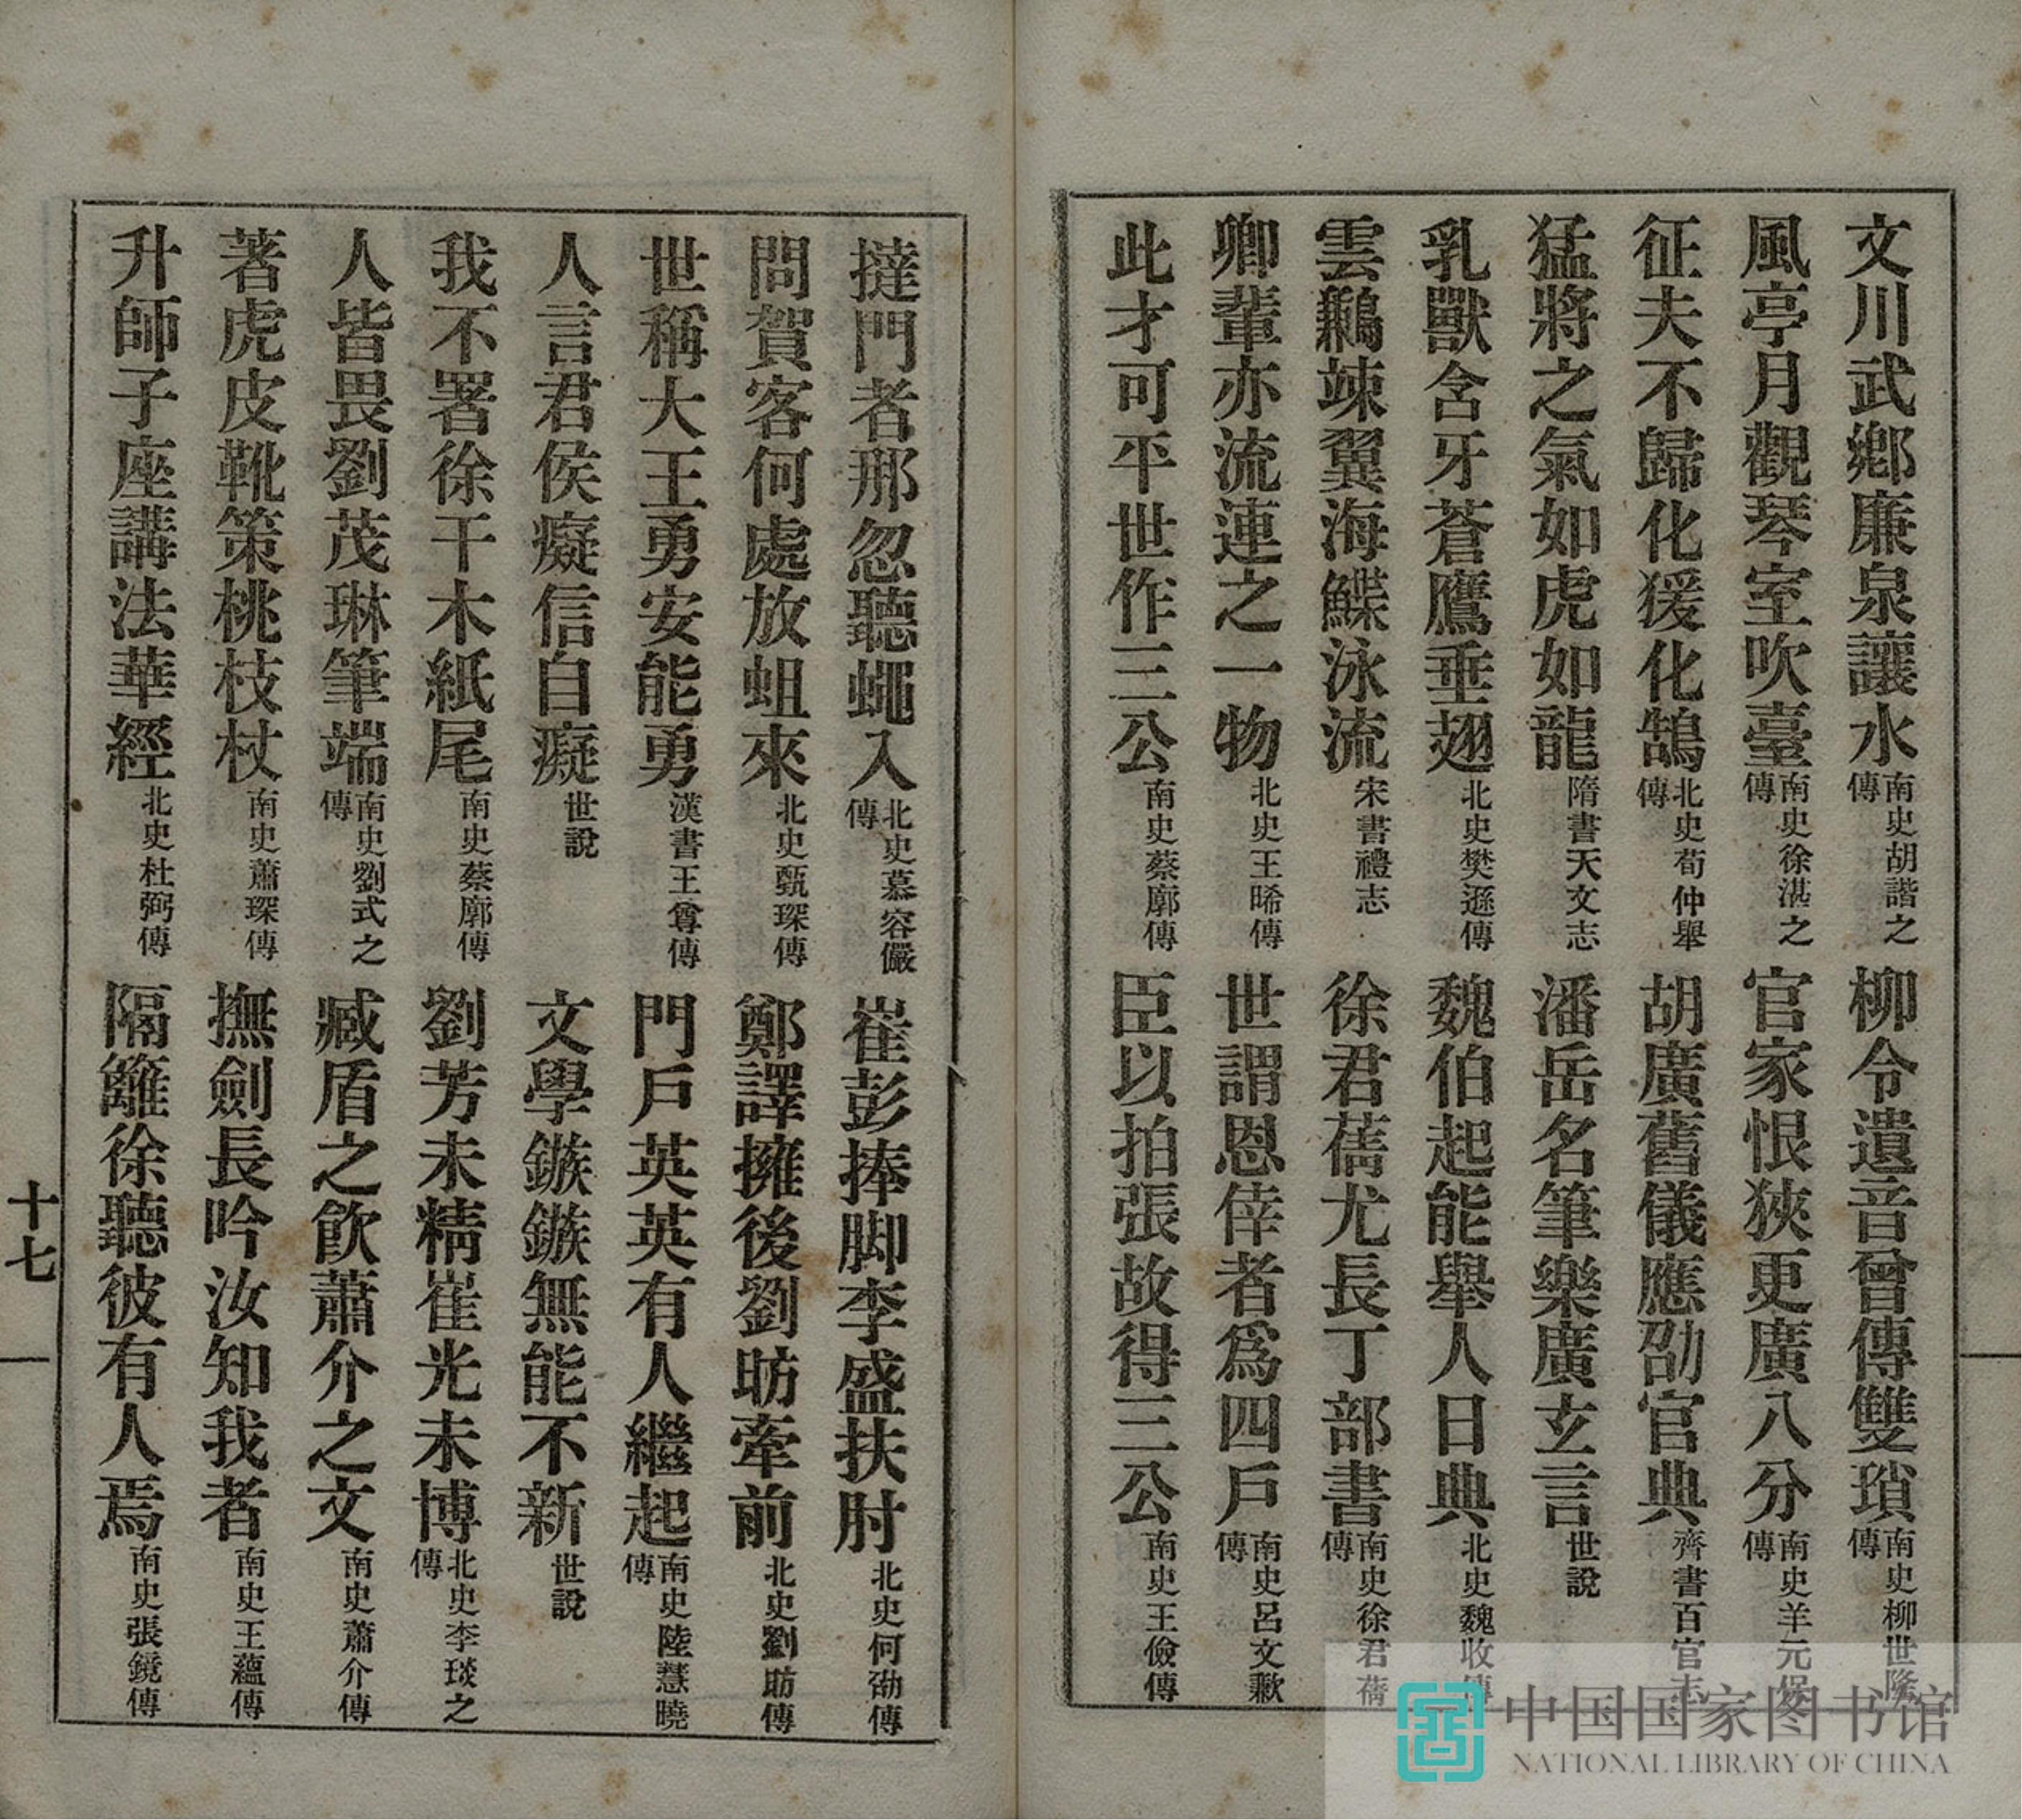 文川武鄉廉泉讓水南史胡諧之傳　柳令遺音曾傳雙瑣南史柳世隆傳
風亭月觀琴室吹臺南史徐湛之傳　官家恨狹更廣八分南史羊元保傳
征夫不歸化猨化鵠北史荀仲舉傳　胡廣舊儀應劭官典齊書百官志
猛將之氣如虎如龍隋書天文志　潘岳名筆樂廣玄言世說
乳獸含牙蒼鷹垂翅北史樊遜傳　魏伯起能舉人日典北史魏收傳
雲鶼竦翼海鰈泳流宋書禮志　徐君蒨尤長丁部書南史徐君蒨傳
卿輩亦流連之一物北史王晞傳　世謂恩倖者爲四戶南史呂文歉傳
此才可平世作三公南史蔡廓傳　臣以拍張故得三公南史王儉傳
撻門者那忽聽蠅入北史慕容儼傳　崔彭捧脚李盛扶肘北史何劭傳
問賀客何處放蛆來北史甄琛傳　鄭譯擁後劉昉牽前北史劉昉傳
世稱大王勇安能勇漢書王尊傳　門戶英英有人繼起南史陸慧曉傳
人言君侯癡信自癡世說　文學鏃鏃無能不新世說
我不署徐干木紙尾南史蔡廓傳　劉芳未精崔光未博北史李琰之傳
人皆畏劉茂琳筆端南史劉式之傳　臧盾之飲蕭介之文南史蕭介傳
著虎皮靴策桃枝杖南史蕭琛傳　撫劍長吟汝知我者南史王蘊傳
升師子座講法華經北史杜弼傳　隔籬徐聽彼有人焉南史張鏡傳
十七
中国国家图书馆
NATIONAL LIBRARY OF CHINA